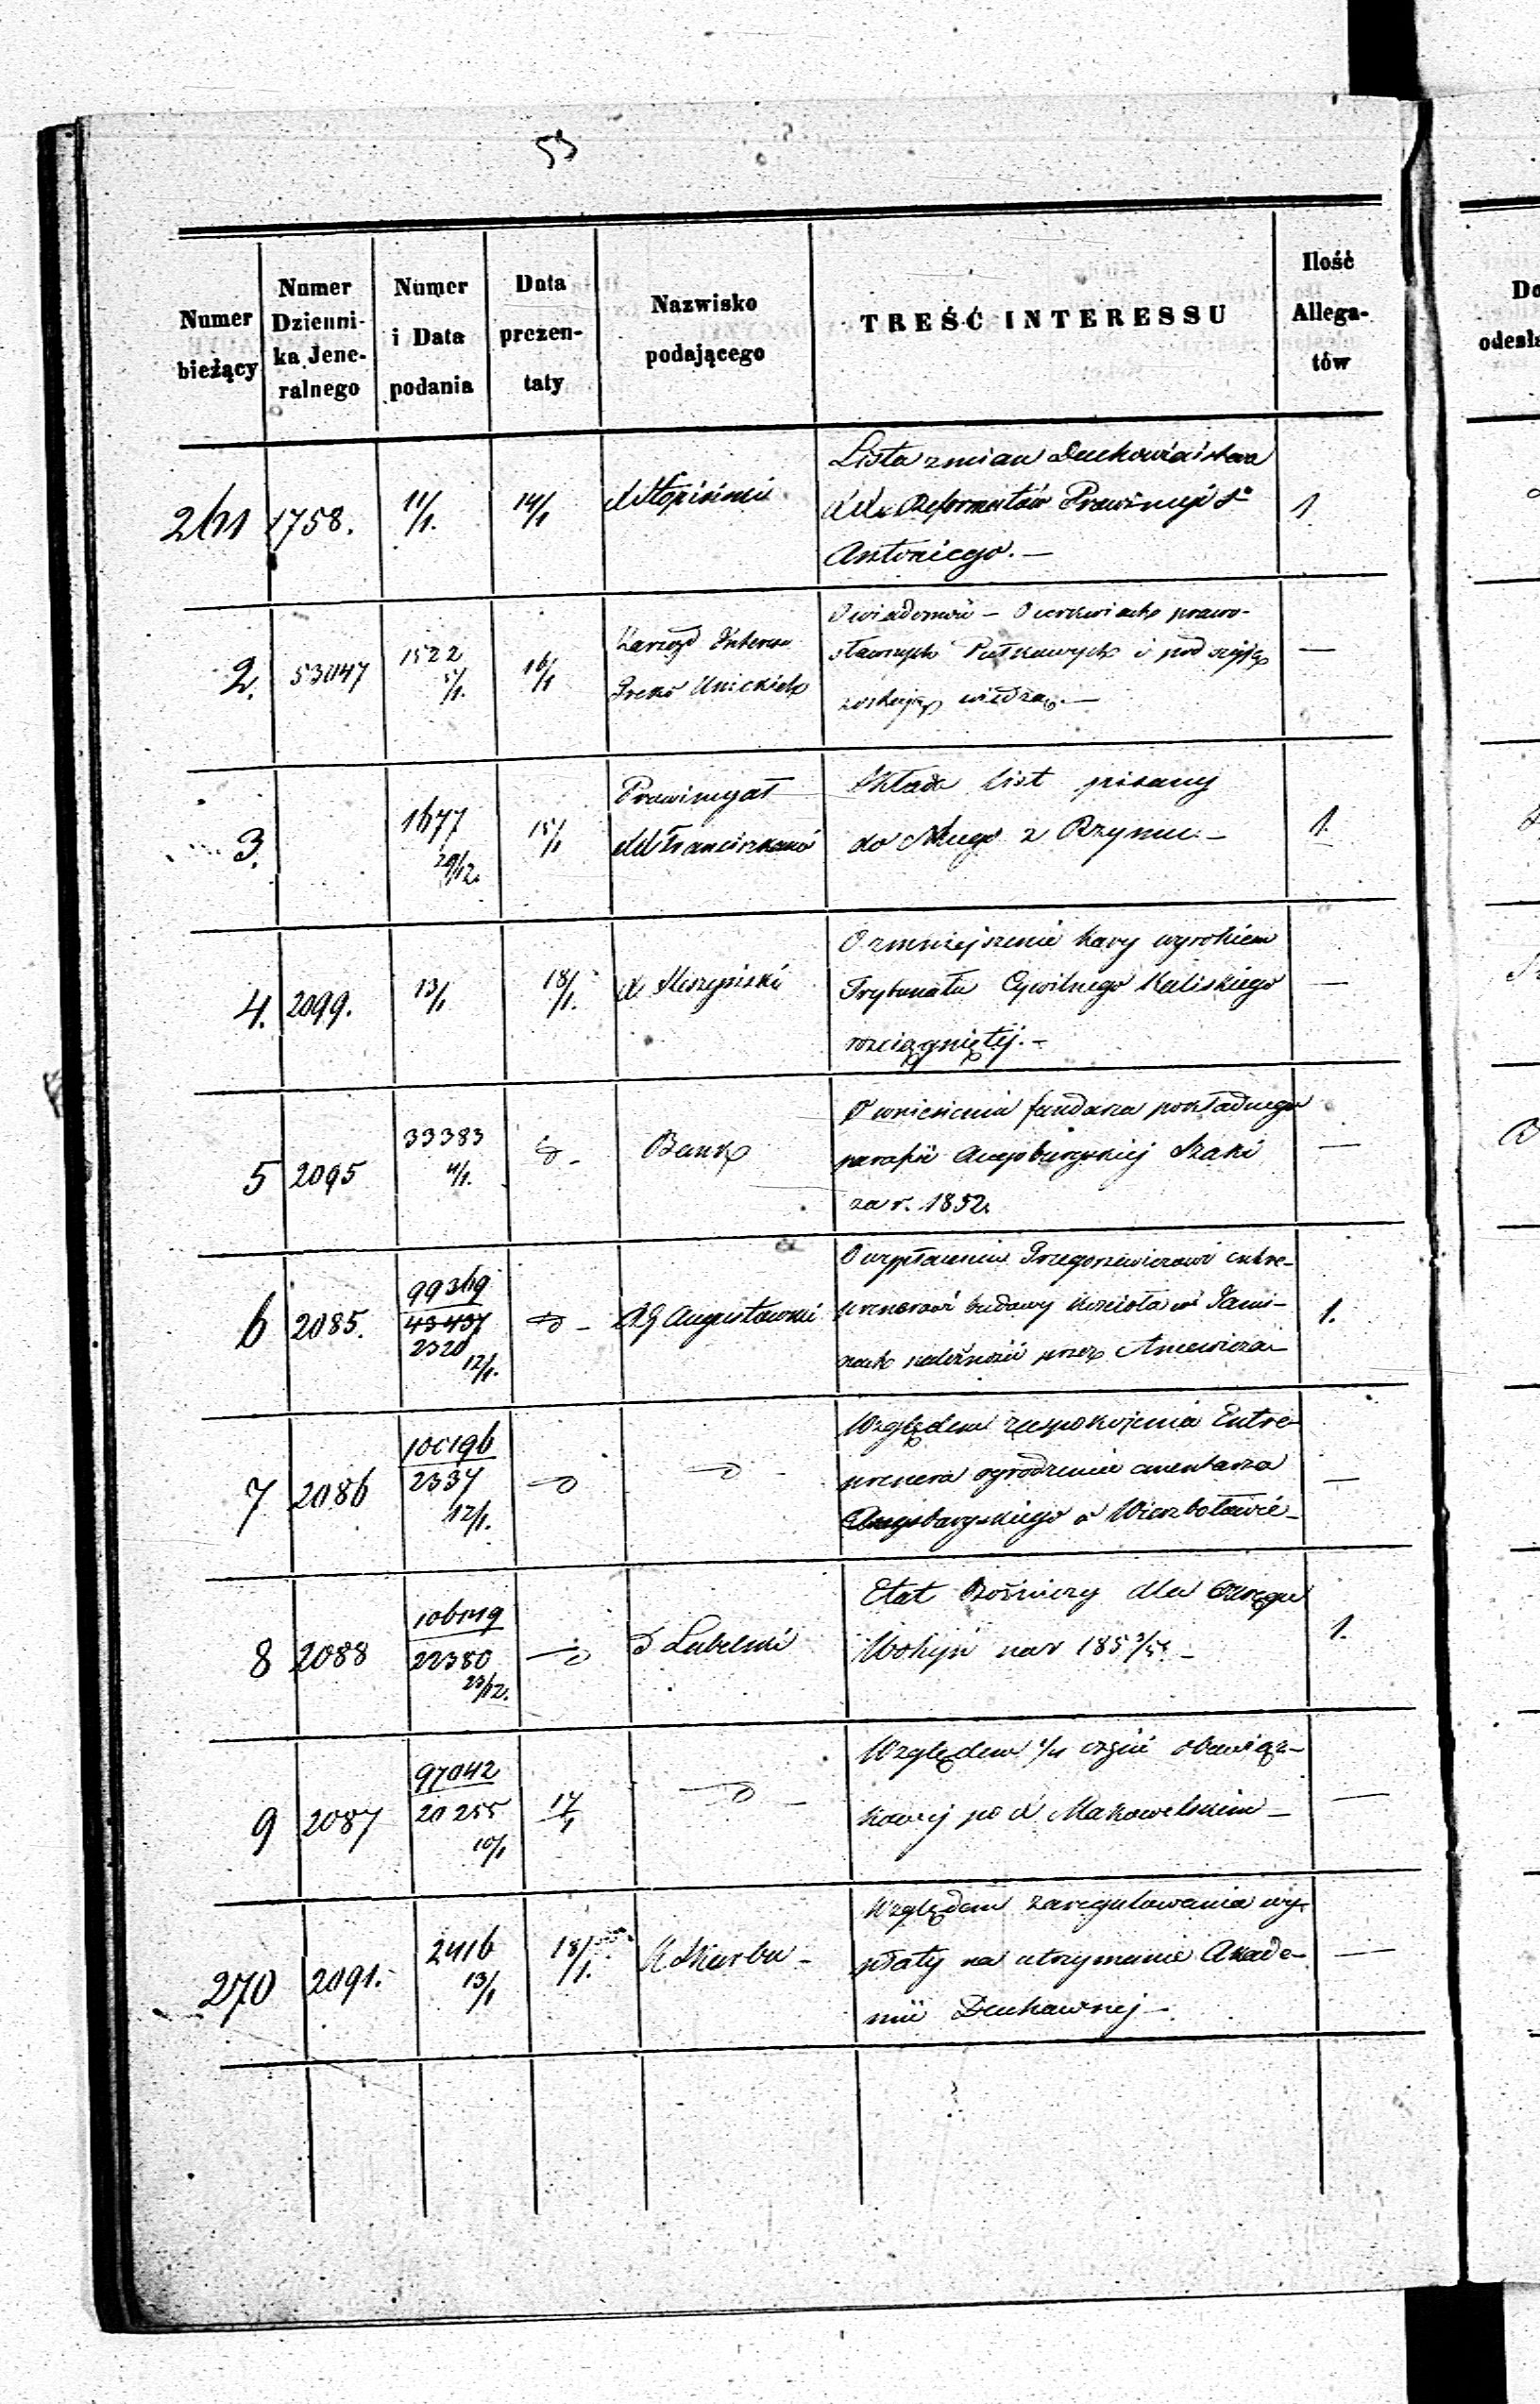 53
Numer bieżący
Numer Dzienni-ka Jene-ralnego
Numer i Data podania
Data prezen-taty
Nazwisko podającego
TREŚĆ INTERESSU
Ilość Allega-tów
261 1758. 11/1. 14/1 1
Lista zmian Duchowieństwa
Reformatów Prowincyi Sº
Antoniego. —
2. 53047 1522 5/1. 16/1 —
Zarząd Interes
Greko Unickich
O wiadomość – O cerkwiach prawo-
sławnych Pułkowych i pod czyją
zostają wiedzą. —
3. 1677 29/12. 15/1 1.
Prowincyał
XX Franciszkanów
Składa list pisany
do Niego z Rzymu. —
4. 2099. 13/1 18/1. —
O zmniejszenie kary wyrokiem
Trybunału Cywilnego Kaliskiego
rozciągniętej. —
5 2095 33383 4/1. Bank —
O wniesienia fundusza pokładnego
parafii Augsburgskiej Szaki
za r. 1852.
6 2085. 99369 43437 2320 12/1. RG Augustowski 1.
O wypłacenie Grzegorzewiczowi entre-
prenerowi budowy kościoła w
należność przez
7 2086 100196 2337 12/1. —
Względem zaspokojenia Entre-
prenera ogrodzenia cmentarza
Augsburgskiego w Wierzbołowie —
8 2088 22380 23/12. Lubelski 1.
Etat Bożniczy dla Okręgu
Wohyń na r 1853/5. —
9 2087 97042 20255 10/1 17/1 —
Względem części obowiąz-
kowej po X Makowelskim —
270 2091. 2416 13/1 18/1. K Skarbu — —
Względem zaregulowania wy-
płaty na utrzymanie Akade-
mii Duchownej —
Do
odesła